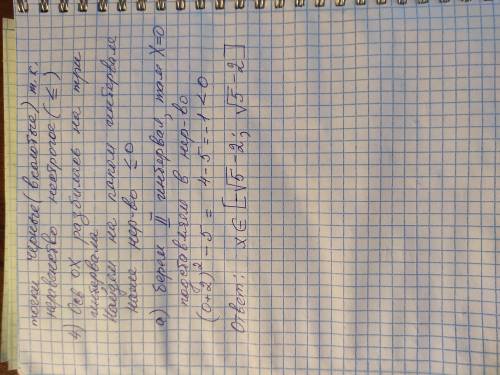 точки черные (вколотые) т.к.
неравенство нестрогое (≤)
4) Ось ох разбилась на три
интервала
Найдем на каком интервале
наше нер-во ≤ 0
а) берем II интервал, там x=0
подставляем в нер-во
(0+2)² - 5 = 4-5 = -1 < 0
Ответ: x ∈ [-√5-2; √5-2]